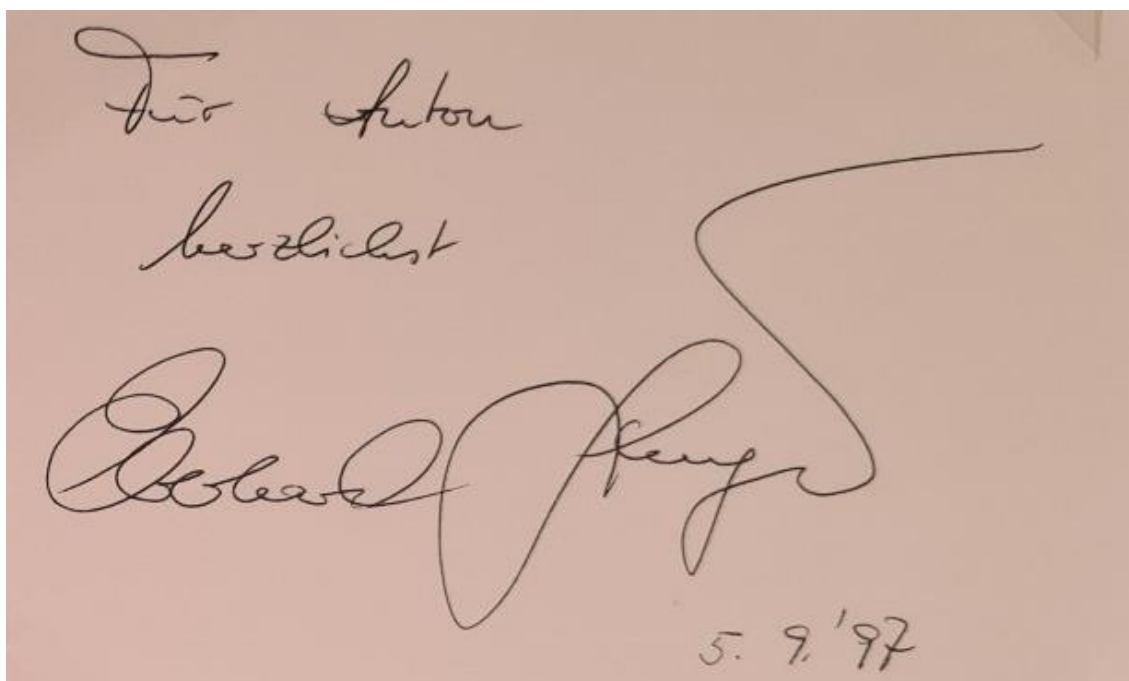 Für Anton
herzlichst
Eberhard
5. 9. '97